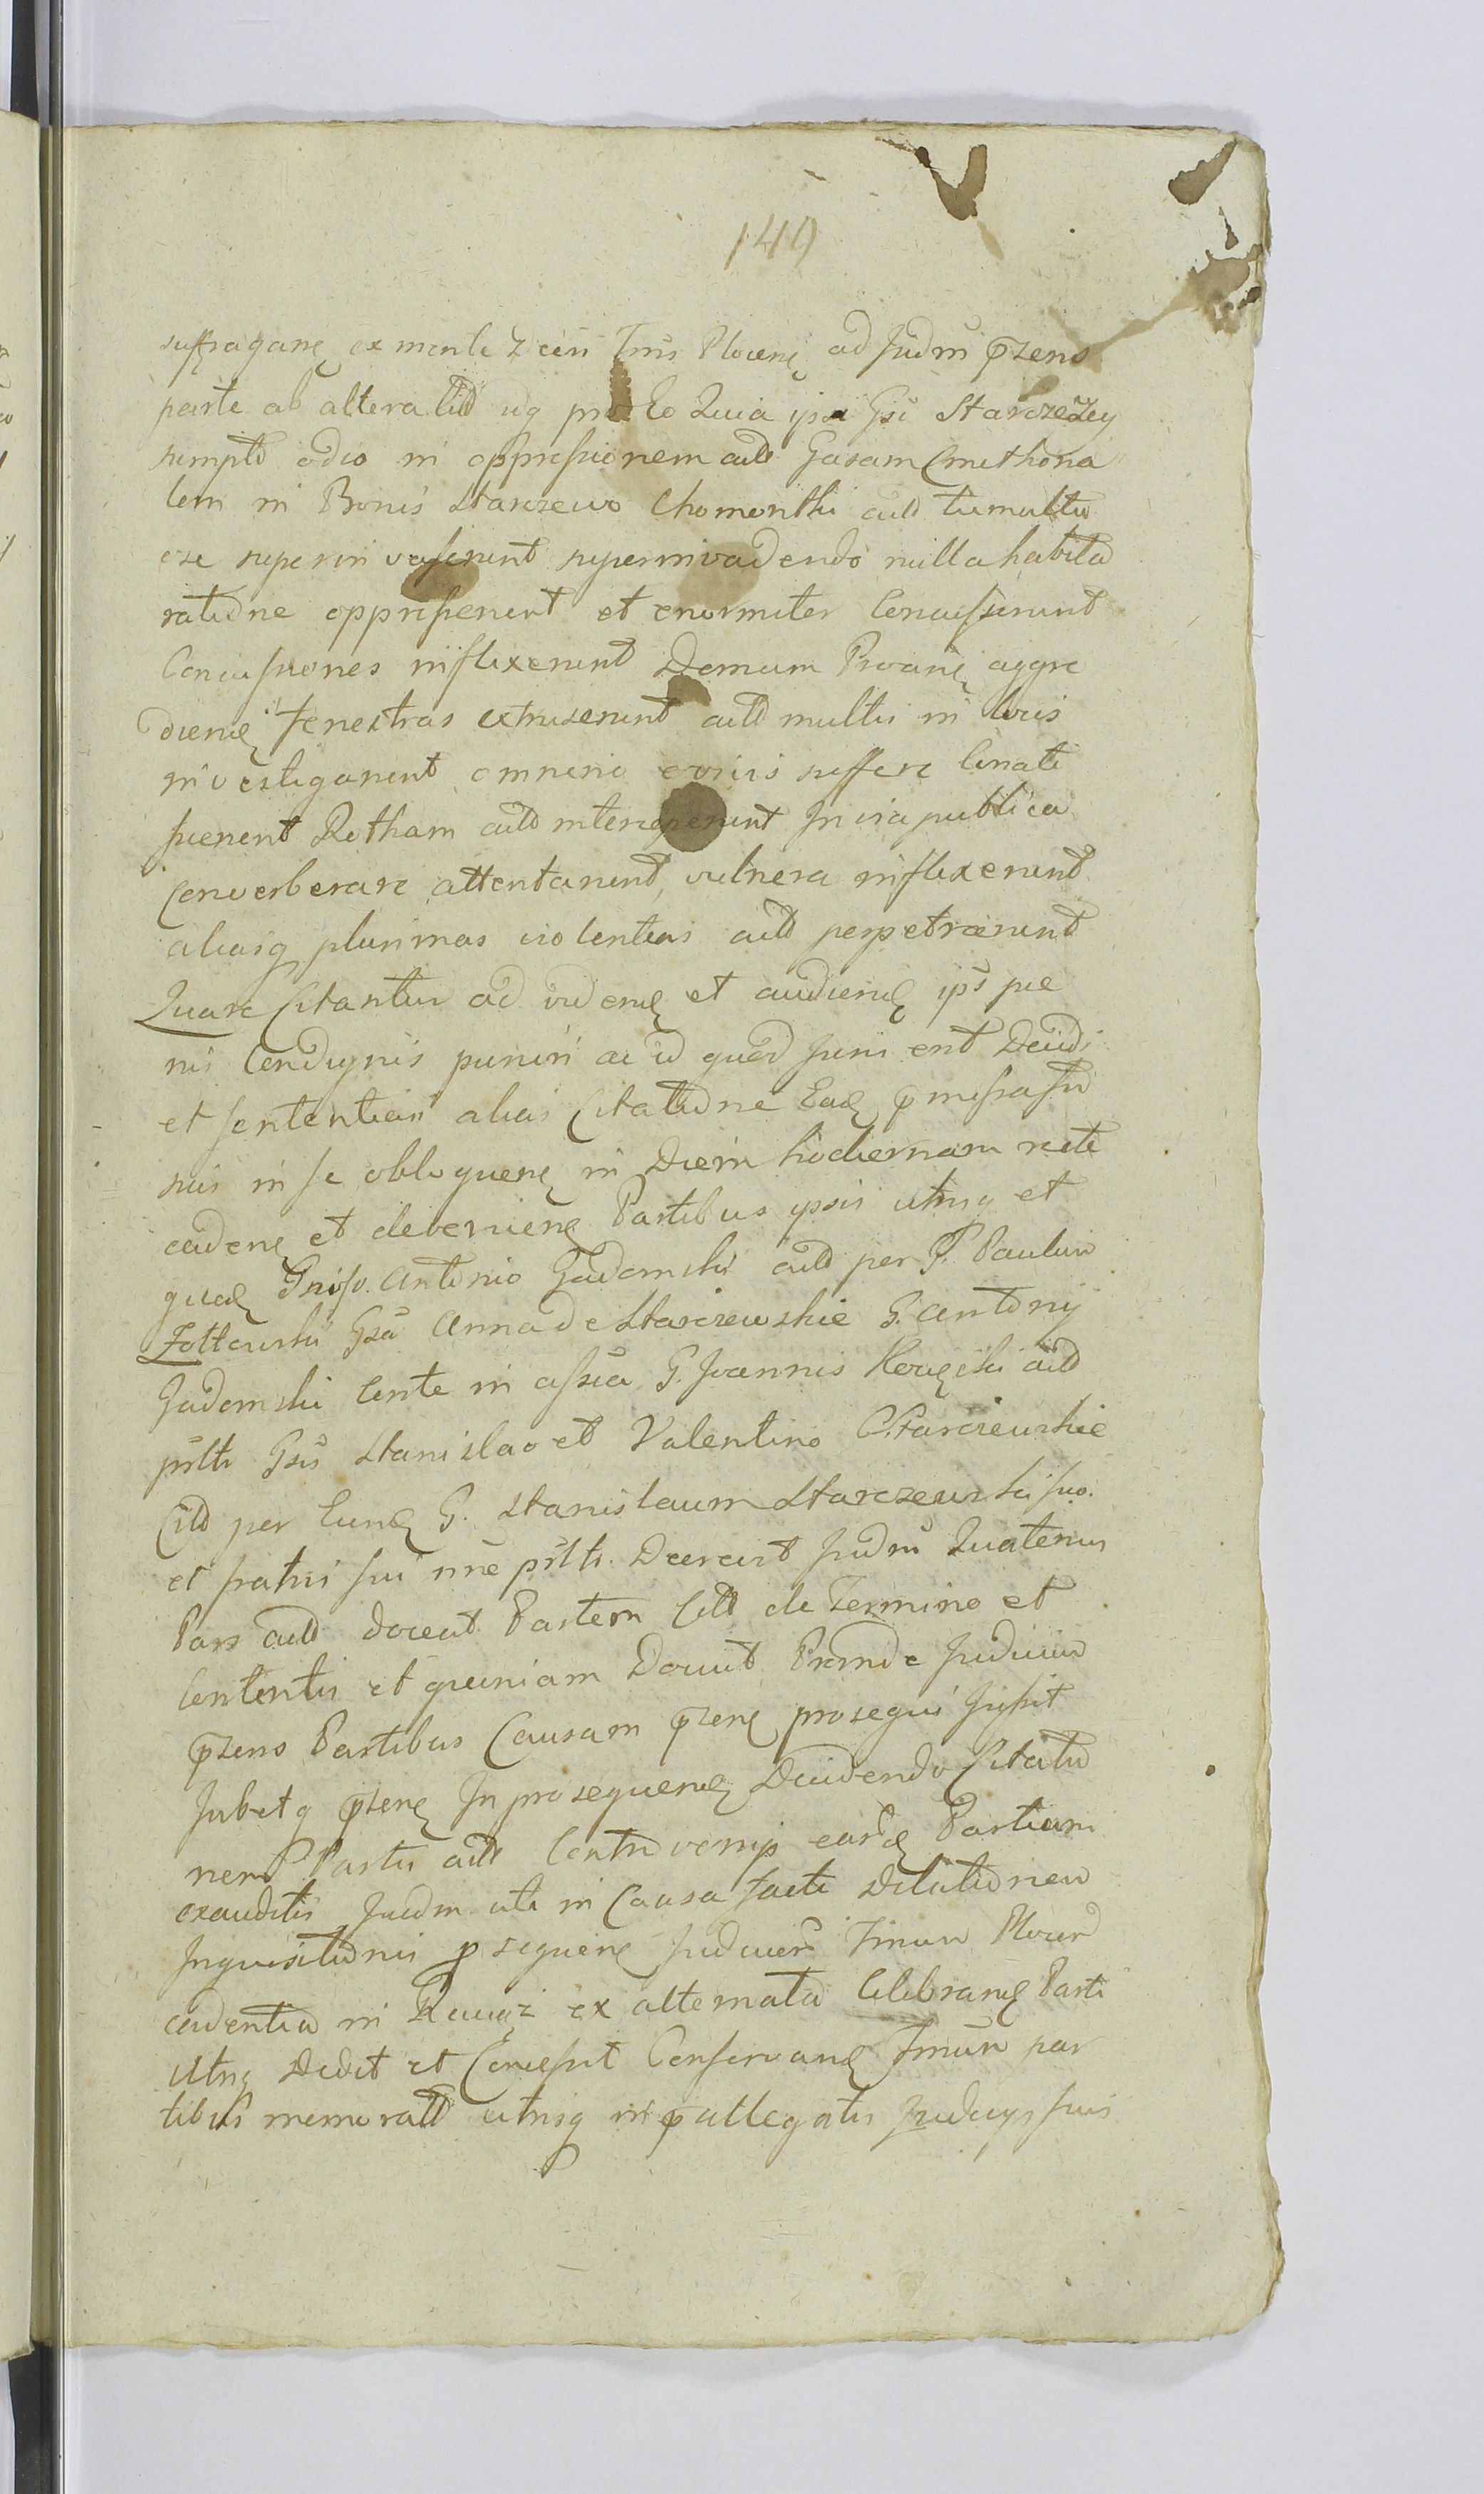 149
suffraganę ex mente z ceń Tmi Plocenę ad Judm p̄zens
parte ab altera litt vig pro Eo Quia ipsi Gsi Starczewscy
sumpto odio in oppressionem actt Gasam Cmethona
lem in Bonis Starczewo Chomenthi actt tumultu
ose superinvaserunt superinvadendo nulla habita
ratione oppresserunt et enormiter Concusserunt
Concussiones inflixerunt Domum Provanę aggre
dienę fenestras extruserunt actt multis in locis
investigarunt omnino suffere Conati
fuerunt Rotham actt interceperunt In via publica
Converberare attentarunt, vulnera inflixerunt
aliasq plurimas violentias actt perpetrarunt
Quare Citantur ad videnę et audienę ips pae
nis Condignis puniri ac id quod Juris erit Decidi
et sententiari alias Citatione Eadę p̄missa su
sius in se obloquenę in Diem hodiernam recte
cadenę et devenienę Partibus ipsis utrisq et
quidę Gniso. Antonio Gadomski actt per G. Paulum
Zottowski Gsa Anna de Starczewskie G. Antonij
Gadomski Conte in assia G. Joannis actt
pństi Gsis Stanislao et Valentino Starczewskie
Citt per Eundę G. Stanislaum Starczewski suo.
et fratris sui nne pństi. Decrevit Judm Quatenus
Pars actt doceat Partem Citt de Termino et
Contentis et quoniam Docuit Proinde Judicium
p̄zens Partibus Causam p̄zenę prosequi Jussit
Jubetq p̄zenę In prosequenę Decidendo Citatio
nem Partis actt Controversijs earūdę Partium
exauditis Judm uti in Causa facti Dilationem
Inquisitionis p̄sequenę Judicior Tmum Plocen
cadentium in Raciąż ex alternata Celebrandę Parti
Utriq Dedit et Concessit Conservandę Tmum par
tibus memoratt utrisq in p̄allegatis Judicys suis